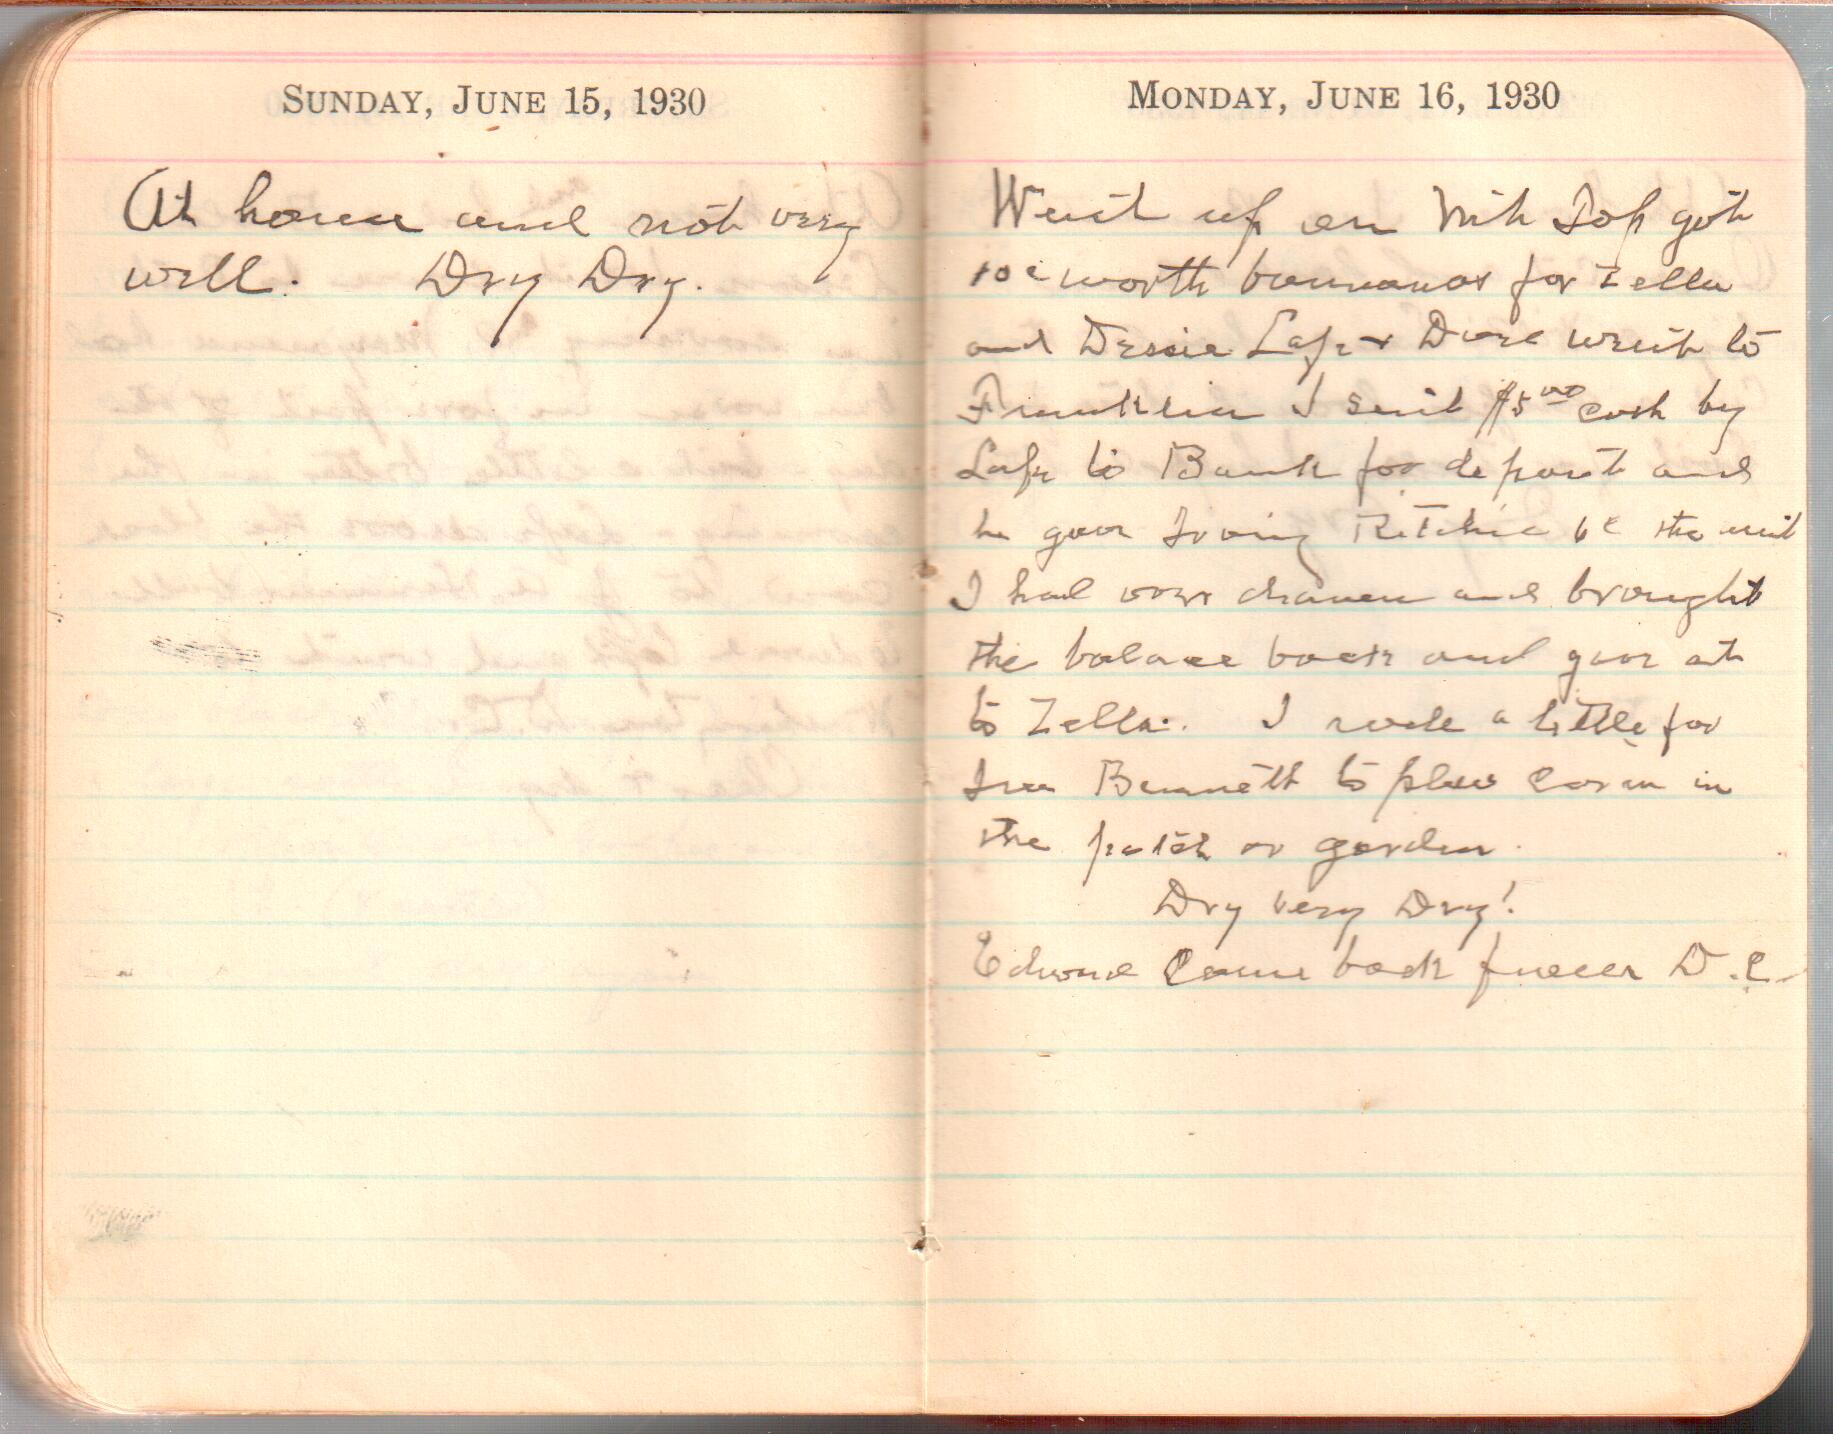 SUNDAY, JUNE 15, 1930
At home and not very
well. Dry Dry.
MONDAY, JUNE 16, 1930
Went up on Top got
10¢ worth bannanas for Zella
and Dessie Lafe + Dove went to
Franklin I sent $5.00 cash by
Lafe to Bank for deposit and
he gave Irving Ritchie 6¢ the
I had over drawn and brought
the balace back and gave it
to Zella. I rode a little for
Ira Bennett to plow corn in
the patch or garden.
Dry very Dry!
Edward Came back from D.C.